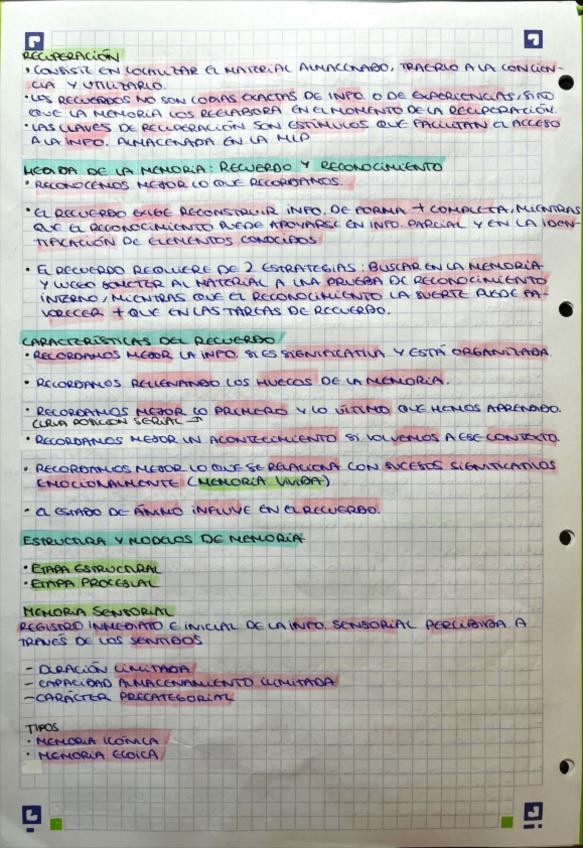 RECUPERACIÓN
• CONSISTE EN LOCALIZAR EL MATERIAL ALMACENADO, TRAERLO A LA CONCIEN-
CIA Y UTILIZARLO.
• LOS RECUERDOS NO SON COPIAS EXACTAS DE INFO O DE EXPERIENCIAS, SINO
QUE LA MEMORIA LOS REELABORA EN EL MOMENTO DE LA RECUPERACIÓN.
• LAS CLAVES DE RECUPERACIÓN SON ESTÍMULOS QUE FACILITAN EL ACCESO
A LA INFO. ALMACENADA EN LA MLP
MEDIDA DE LA MEMORIA: RECUERDO Y RECONOCIMIENTO
• RECONOCEMOS MEJOR LO QUE RECORDAMOS.
• EL RECUERDO EXIGE RECONSTRUIR INFO. DE FORMA + COMPLETA, MIENTRAS
QUE EL RECONOCIMIENTO PUEDE APOYARSE EN INFO. PARCIAL Y EN LA IDEN-
TIFICACIÓN DE ELEMENTOS CONOCIDOS
• EL RECUERDO REQUIERE DE 2 ESTRATEGIAS: BUSCAR EN LA MEMORIA
Y LUEGO SOMETER AL MATERIAL A UNA PRUEBA DE RECONOCIMIENTO
INTERNO, MIENTRAS QUE EL RECONOCIMIENTO LA SUERTE PUEDE FA-
VORECER + QUE EN LAS TAREAS DE RECUERDO.
CARACTERÍSTICAS DEL RECUERDO
• RECORDAMOS MEJOR LA INFO. SI ES SIGNIFICATIVA Y ESTÁ ORGANIZADA.
• RECORDAMOS RELLENANDO LOS HUECOS DE LA MEMORIA.
• RECORDAMOS MEJOR LO PRIMERO Y LO ÚLTIMO QUE HEMOS APRENDIDO.
CURVA POSICIÓN SERIAL
• RECORDAMOS MEJOR UN ACONTECIMIENTO SI VOLVEMOS A ESE CONTEXTO.
• RECORDAMOS MEJOR LO QUE SE RELACIONA CON SUCESOS SIGNIFICATIVOS
EMOCIONALMENTE (MEMORIA VIVIDA)
• EL ESTADO DE ÁNIMO INFLUYE EN EL RECUERDO.
ESTRUCTURA Y MODELOS DE MEMORIA
• ETAPA ESTRUCTURAL
• ETAPA PROCESUAL
MEMORIA SENSORIAL
REGISTRO INMEDIATO E INICIAL DE LA INFO. SENSORIAL PERCIBIDA A
TRAVÉS DE LOS SENTIDOS
- DURACIÓN LIMITADA
- CAPACIDAD ALMACENAMIENTO ILIMITADA
- CARÁCTER PRECATEGORIAL
TIPOS
• MEMORIA ICÓNICA
• MEMORIA ECOICA